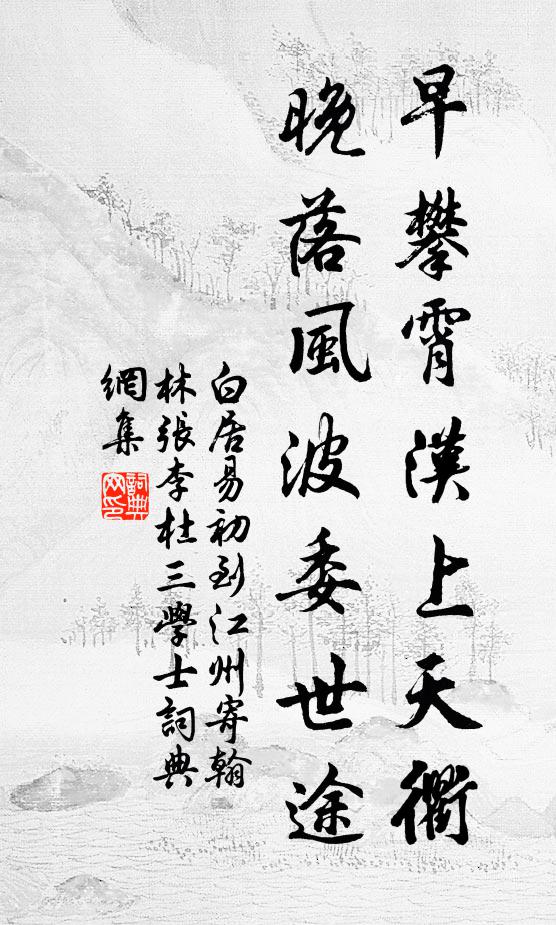 早攀霄漢上天衢
晚落風波委世途
白居易初到江州寄翰
林張李杜三學士詞典
網集
詞典
网印